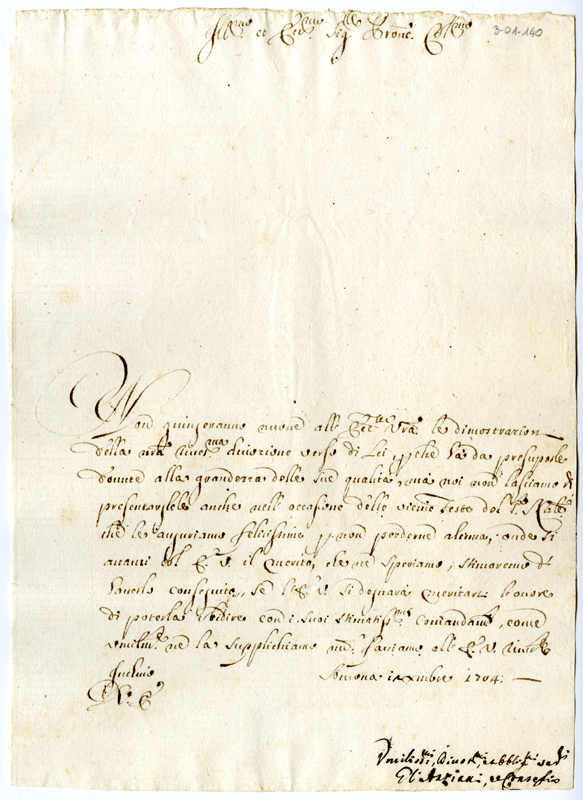 Ill.mo et Ecc.mo Sig.r Prone Col.mo
3-01-140
Non giungeranno nuove all'Ecc.za Vra le dimostrazion
della nra divozione verso di Lei, che l'ha da presuporle
dounte alla grandezza delle sue qualità, mà noi non lasciamo di
presentarglele anche nell'occasione delle vicine feste del S. Natale
che le auguriamo felicissime p non perderne alcuna, onde si
auanzi col E. V. il merito, che ne speriamo; stimaremo di
hauerlo conseguito, se l'E. V. si degnarà meritarci l'onore
di poterla ubidire con i suoi stimatiss.mi comandam.ti, come
umilm.te ne la supplichiamo, mentre facciamo all'E. V.
Inchino
Xmbre 1704
D. V. E.
Umiliss.mi, Diuot.mi, et obblig.mi ser.ri
Gl'Anziani, e Consiglio